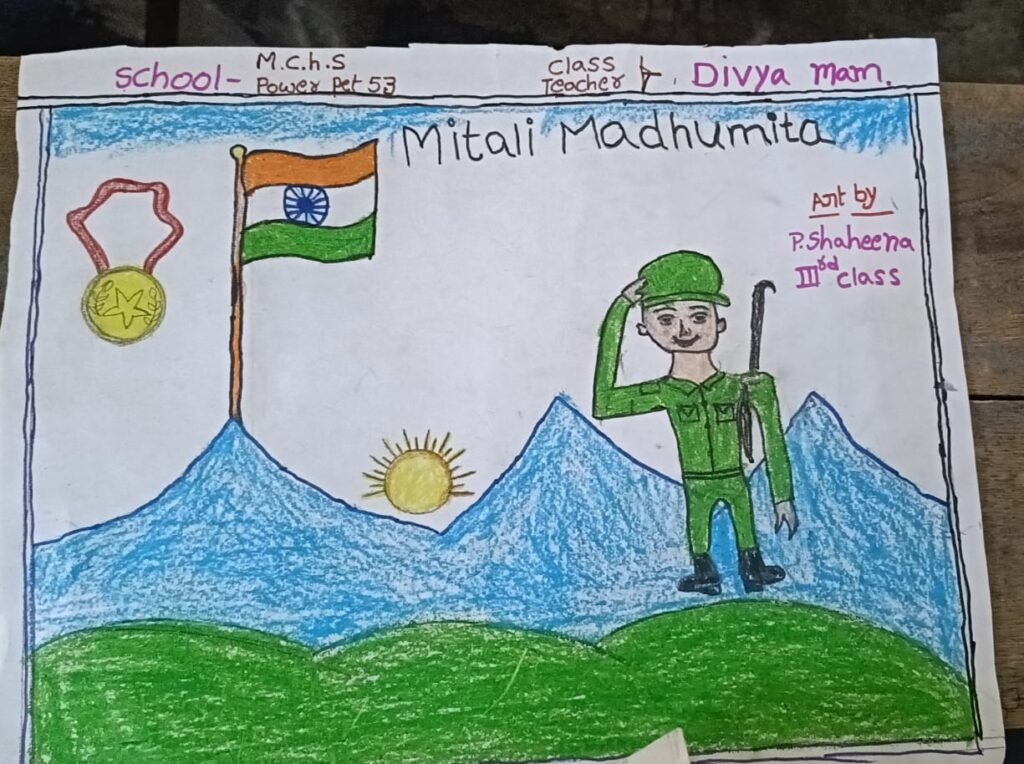 School- M.C.h.S
Power Pet 53
Class
Teacher
Divya mam.
Mitali Madhumita
Art by
P. Shaheena
IIIrd class